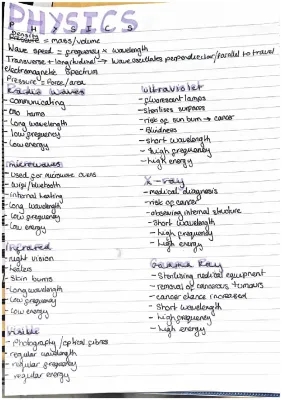 PHYSICS
PHYSICS
Density
Pressure = mass/volume
Wave speed = frequency × wavelength
Transverse + longitudinal → wave oscillates perpendicular/parallel to travel
electromagnetic spectrum
Pressure = Force/area
Radio Waves
- communicating
- no harm
- Long wavelength
- low frequency
- low energy
microwaves
- Used for microwave ovens
- wifi/bluetooth
- internal heating
- Long wavelength
- Low frequency
- Low energy
Infrared
- night vision
- heaters
- Skin burns
- Long wavelength
- Low frequency
- Low energy
Visible
- Photography/optical fibres
- regular wavelength
- regular frequency
- regular energy
Ultraviolet
- fluorescent lamps
- Sterilises surfaces
- risk of sun burn → cancer
- Blindness
- short wavelength
- high frequency
- high energy
X-ray
- medical diagnosis
- risk of cancer
- observing internal structure
- Short wavelength
- high frequency
- high energy
Gamma Ray
- Sterilising medical equipment
- removal of cancerous tumours
- cancer chance increased
- Short wavelength
- high frequency
- high energy